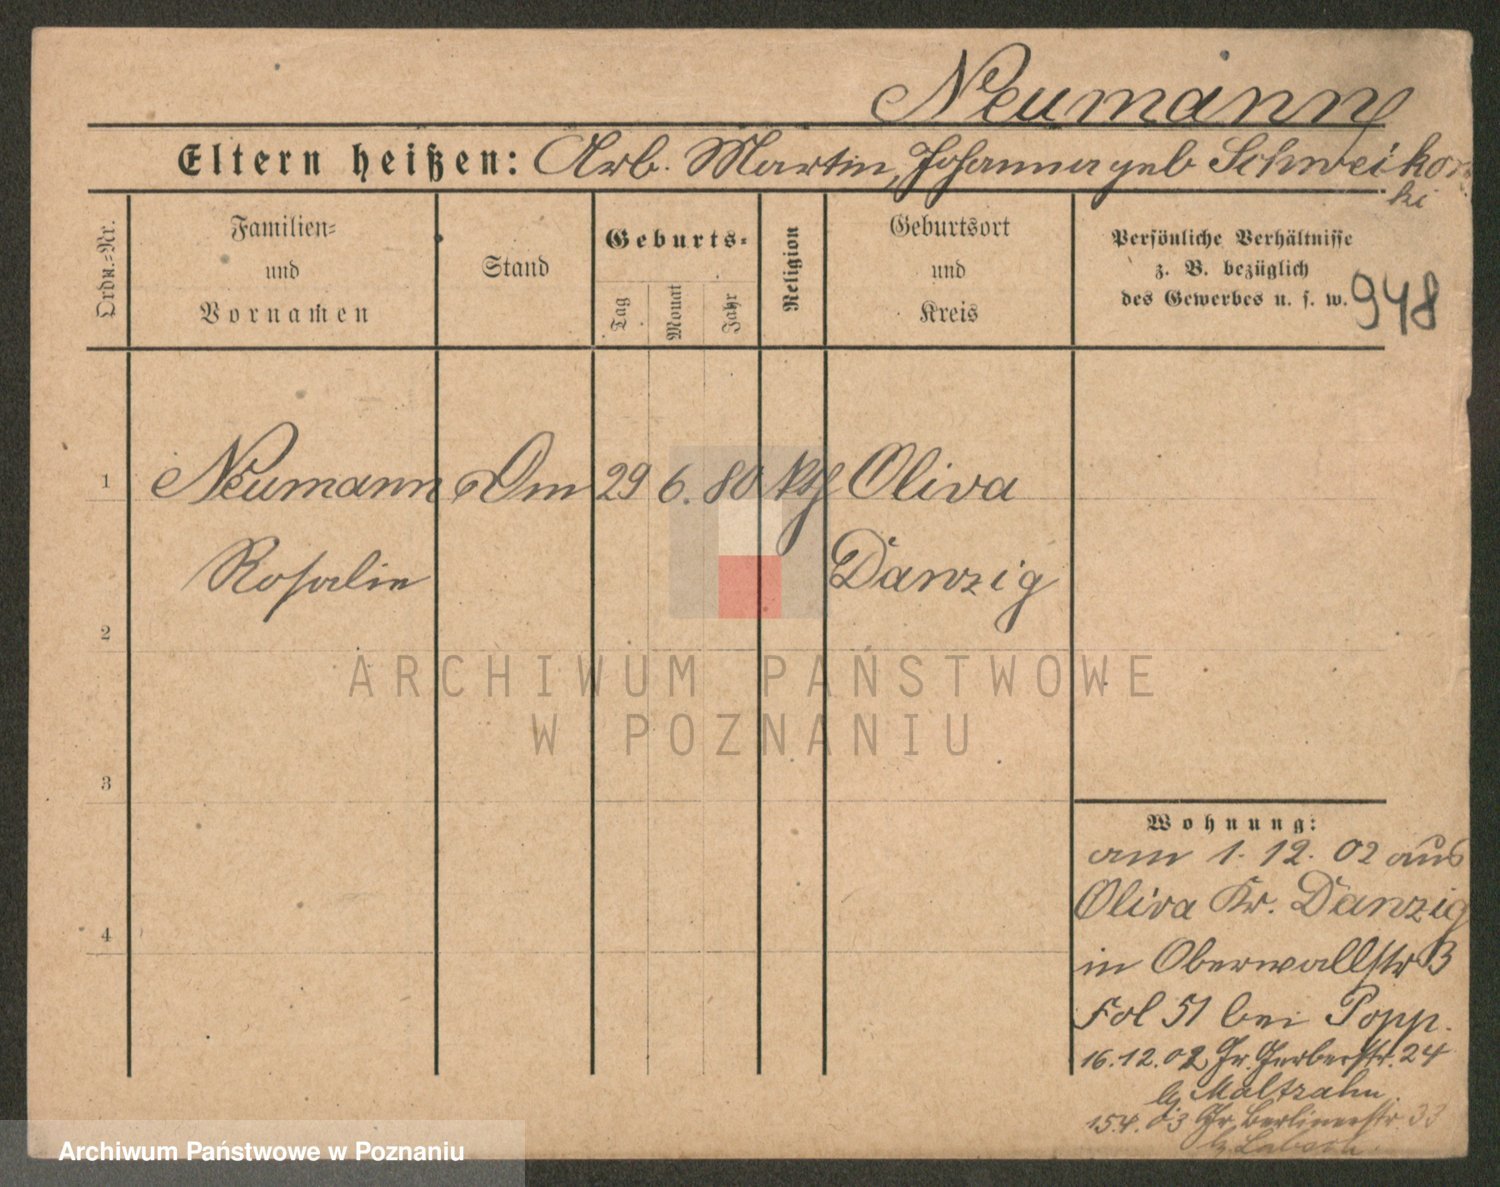 Neumann
Eltern heißen: Arb. Martin, Johanna geb Schweikow
ki
Ordn.-Nr.
Familien-
und
Vornamen
Stand
Geburts-
Tag
Monat
Jahr
Religion
Geburtsort
und
Kreis
Persönliche Verhältnisse
z. B. bezüglich
des Gewerbes u. s. w.
948
1
Neumann
29
6.
80
kth
Oliva
Rosalie
Danzig
2
ARCHIWUM PAŃSTWOWE
W POZNANIU
3
4
Wohnung:
am 1. 12. 02 aus
Oliva Kr. Danzig
in Oberwallstr
Fol 51 bei Popp.
16.12.02 Gr. Gerberstr. 24
b Maltzahn.
15.4.03 Gr. Berlinerstr. 33
b
Archiwum Państwowe w Poznaniu